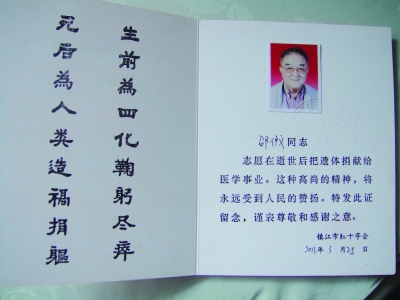 生前為四化鞠躬尽瘁
死后為人类造福捐軀
同志
志愿在逝世后把遗体捐献给
医学事业。这种高尚的精神，将
永远受到人民的赞扬。特发此证
留念，谨表尊敬和感谢之意。
镇江市红十字会
2013年3月25日